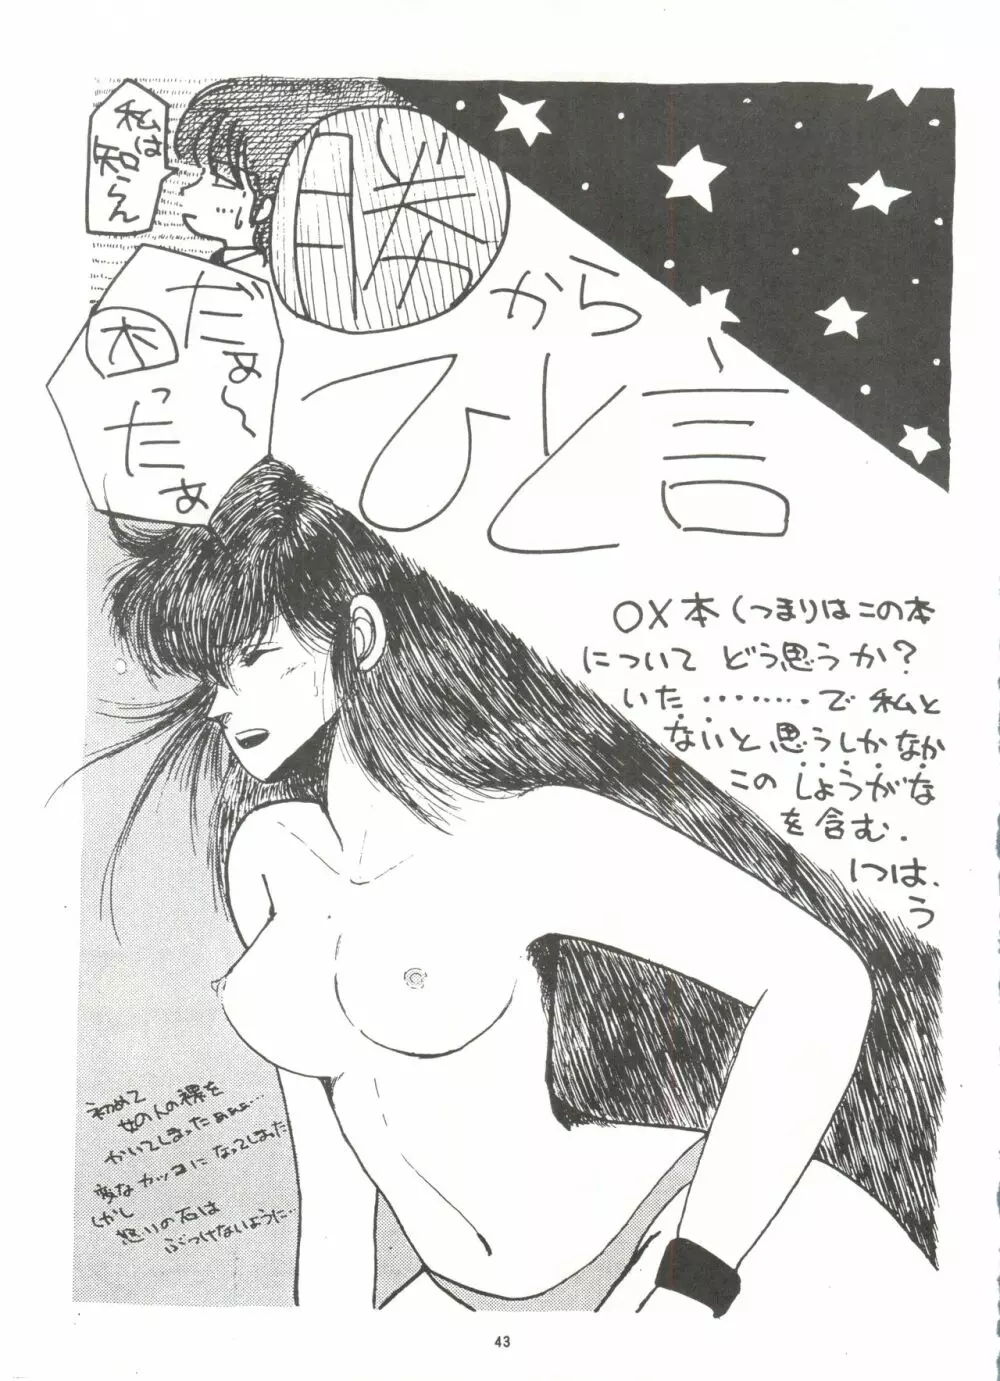 私は
知らん
豚から
ひと言
だぁ〜
困ったぁ
OX本(つまりはこの本
について どう思うか?
いた・・・・・・・・で 私と
ないと思うしかなか
この しょうがな
を含む.
いつは、
う
初めて
女の人の裸を
かいてしまったぁぁぁ…
変なカッコになってしまった
しかし
怒りの石は
ぶつけないように…
43